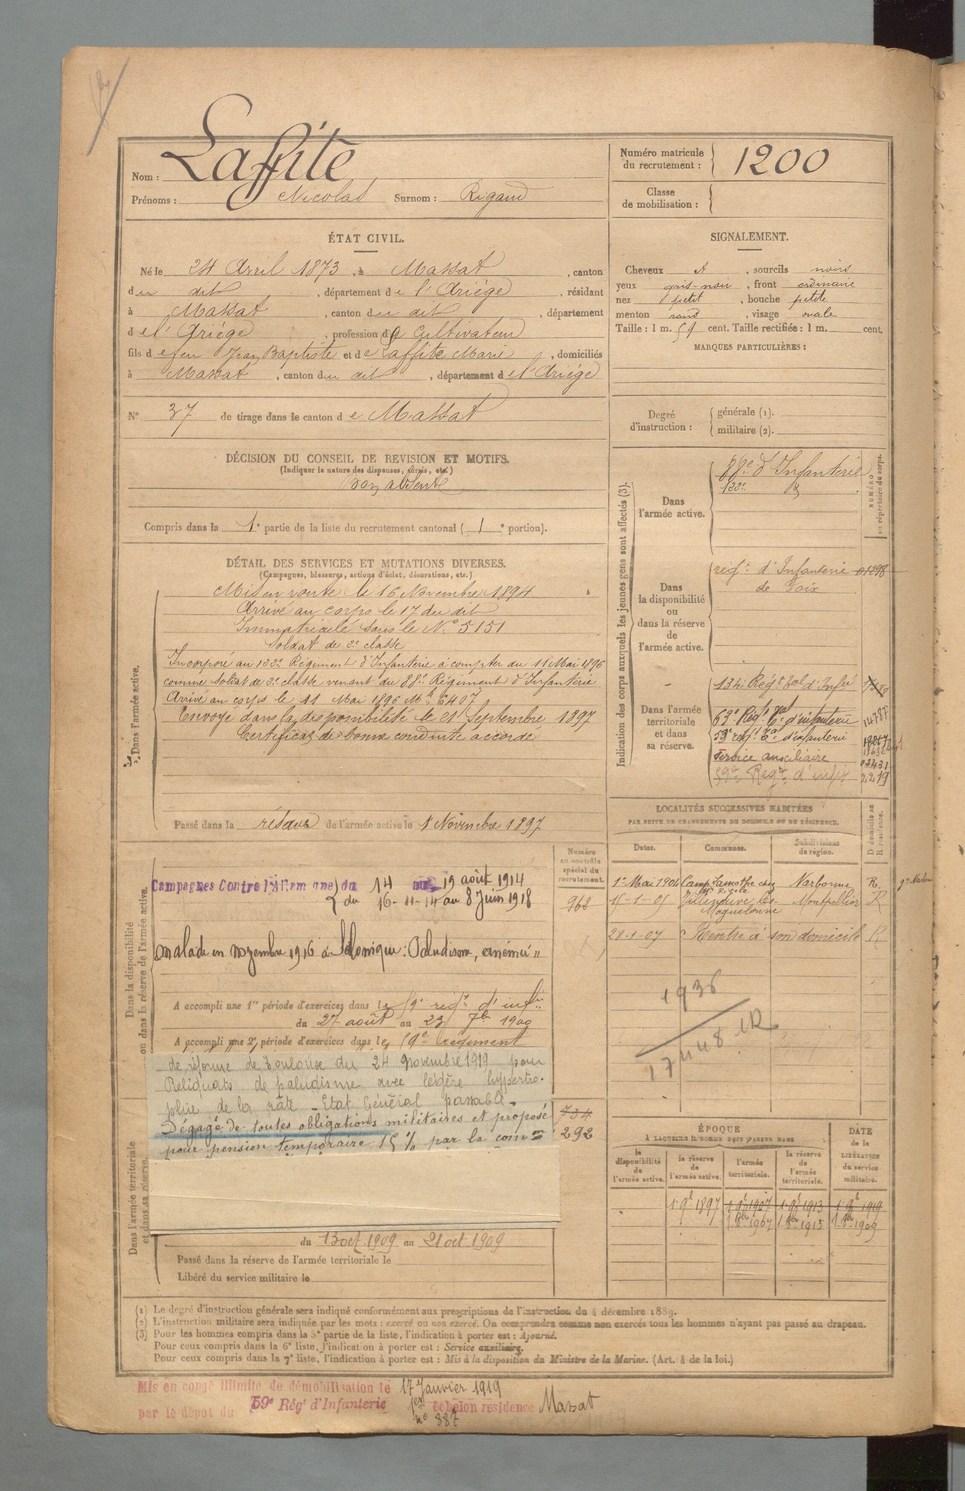 Nom : Laffite
Prénoms : Nicolas Surnom : Rigaud
Numéro matricule du recrutement : 1200
Classe de mobilisation :
ÉTAT CIVIL.
Né le 24 Avril 1873, à Massat, canton
du dit, département de l'Ariège, résidant
à Massat, canton du dit, département
de l'Ariège, profession de Cultivateur
fils de feu Jean Baptiste et de Laffite Marie, domiciliés
à Massat, canton du dit, département de l'Ariège
N° 37 de tirage dans le canton de Massat
SIGNALEMENT.
Cheveux et, sourcils noirs
yeux gris-noir, front ordinaire
nez petit, bouche petite
menton rond, visage ovale
Taille : 1 m. 59 cent. Taille rectifiée : 1 m. cent.
MARQUES PARTICULIÈRES :
Degré d'instruction :
générale (1).
militaire (2).
DÉCISION DU CONSEIL DE REVISION ET MOTIFS.
(Indiquer la nature des dispenses, sursis, etc.)
Bon absent
Compris dans la 1e partie de la liste du recrutement cantonal (1e portion).
DÉTAIL DES SERVICES ET MUTATIONS DIVERSES.
(Campagnes, blessures, actions d'éclat, décorations, etc.)
Dans l'armée active.
Mis en route le 16 Novembre 1894
Arrivé au corps le 17 du dit
Immatriculé sous le N° 5151
Soldat de 2e classe
Incorporé au 122e Régiment d'Infanterie à compter du 11 Mai 1896
comme soldat de 2e classe venant du 88e Régiment d'Infanterie
Arrivé au corps le 11 Mai 1896 No 6407
Envoyé dans la disponibilité le 21 Septembre 1897
Certificat de bonne conduite accordé
Passé dans la réserve de l'armée active le 1 Novembre 1897
Indication des corps auxquels les jeunes gens sont affectés (3).
NUMÉRO au répertoire du corps.
Dans l'armée active.
88e d'Infanterie
122e
Dans la disponibilité ou dans la réserve de l'armée active.
régt d'Infanterie 01298
de Foix
Dans l'armée territoriale et dans sa réserve.
134e Régt Tal d'Infie
63e Régt Tal d'infanterie 14787
59e régt Tal d'infanterie
Service auxiliaire
59e Régt d'infie 2219
LOCALITÉS SUCCESSIVES HABITÉES
PAR SUITE DE CHANGEMENTS DE DOMICILE OU DE RÉSIDENCE.
Dates. Communes. Subdivisions de région. D domicile ou R résidence.
1er Mai 1904 Camp Lamothe chez Narbonne R.
15-1-05 Villeneuve les Maguelonne Montpellier R
28-1-07 Rentré à son domicile R
1936
17448
Dans la disponibilité ou dans la réserve de l'armée active.
Numéro au contrôle spécial du recrutement.
968
Campagnes Contre l'Allemagne du 14 au 19 août 1914
du 16-11-14 au 8 Juin 1918
Malade en novembre 1916 à Salonique : Paludisme, anémie"
A accompli une 1re période d'exercices dans le 59e régt d'infie
du 27 août au 23 7bre 1900
A accompli une 2e période d'exercices dans le 59e régiment
de réforme de Toulouse du 24 Novembre 1919 pour
Reliquats de paludisme avec légère hypertro-
phie de la rate - Etat Général passable.
Dégagé de toutes obligations militaires et proposé
pour pension temporaire 15% par la comon
734
292
Dans l'armée territoriale et dans sa réserve.
du 13 oct 1909 au 21 oct 1909
Passé dans la réserve de l'armée territoriale le
Libéré du service militaire le
ÉPOQUE
À LAQUELLE L'HOMME DOIT PASSER DANS
la disponibilité de l'armée active. la réserve de l'armée active. l'armée territoriale. la réserve de l'armée territoriale.
DATE de la LIBÉRATION du service militaire.
1 9e 1897 1 9e 1907 1 9e 1913 1 9e 1919
1 8bre 1907 1 8bre 1913 1 8bre 1909
(1) Le degré d'instruction générale sera indiqué conformément aux prescriptions de l'instruction du 4 décembre 1889.
(2) L'instruction militaire sera indiquée par les mots : exercé ou non exercé. On comprendra comme non exercés tous les hommes n'ayant pas passé au drapeau.
(3) Pour les hommes compris dans la 5e partie de la liste, l'indication à porter est : Ajourné.
Pour ceux compris dans la 6e liste, l'indication à porter est : Service auxiliaire.
Pour ceux compris dans la 7e liste, l'indication à porter est : Mis à la disposition du Ministre de la Marine. (Art. 4 de la loi.)
Mis en congé illimité de démobilisation le 17 Janvier 1919
par le dépôt du 59e Rég' d'Infanterie 1er échelon residence Massat
n° 887